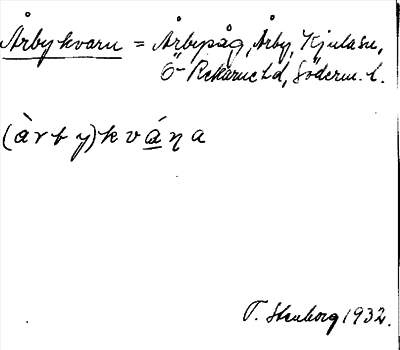 Årbykvarn = Årbypåg, Årby, Kjulasn,
Ö-Rekarne hd, Söderm. l.
(àrby)kvánạ
T. Stenborg 1932.